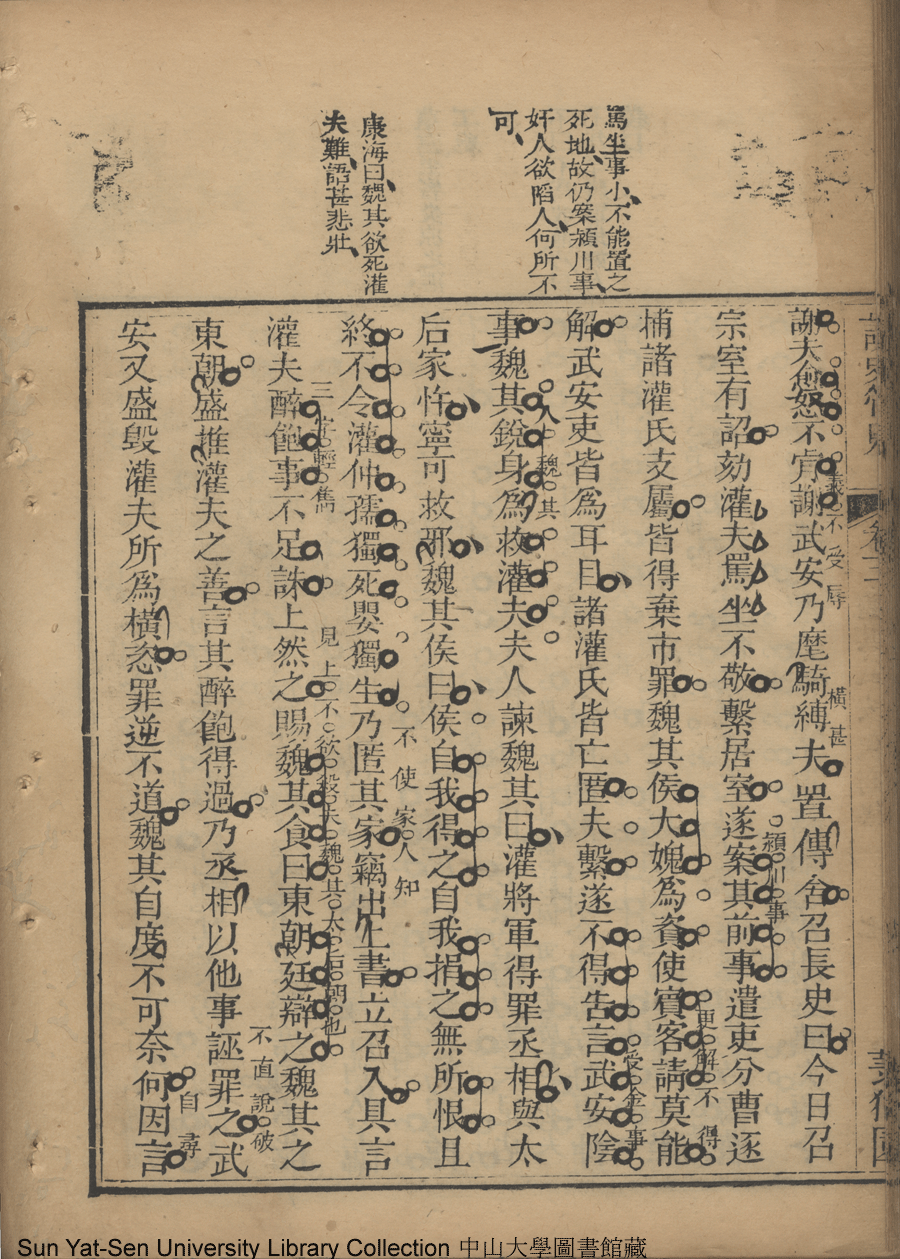 罵坐事小不能置之
死地故仍案潁川事
奸人欲陷人何所不
可
康海曰魏其欲死灌
夫難語甚悲壯
謝夫愈怒不肯謝武安乃麾騎縛夫置傳舍召長史曰今日召
義不受辱
橫甚
宗室有詔劾灌夫罵坐不敬繫居室遂案其前事遣吏分曹逐
潁川事
捕諸灌氏支屬皆得棄市罪魏其侯大媿為資使賓客請莫能
更解不得
解武安吏皆為耳目諸灌氏皆亡匿夫繫遂不得告言武安陰
受金事
事魏其銳身為救灌夫夫人諫魏其曰灌將軍得罪丞相與太
入魏其
后家忤寧可救邪魏其侯曰侯自我得之自我捐之無所恨且
終不令灌仲孺獨死嬰獨生乃匿其家竊出上書立召入具言
不使家人知
灌夫醉飽事不足誅上然之賜魏其食曰東朝廷辯之魏其之
三字輕雋
見上不欲殺夫魏其太后朝也
東朝盛推灌夫之善言其醉飽得過乃丞相以他事誣罪之武
不直說破
安又盛毀灌夫所為橫恣罪逆不道魏其自度不可奈何因言
自尋
卷三
Sun Yat-Sen University Library Collection 中山大學圖書館藏